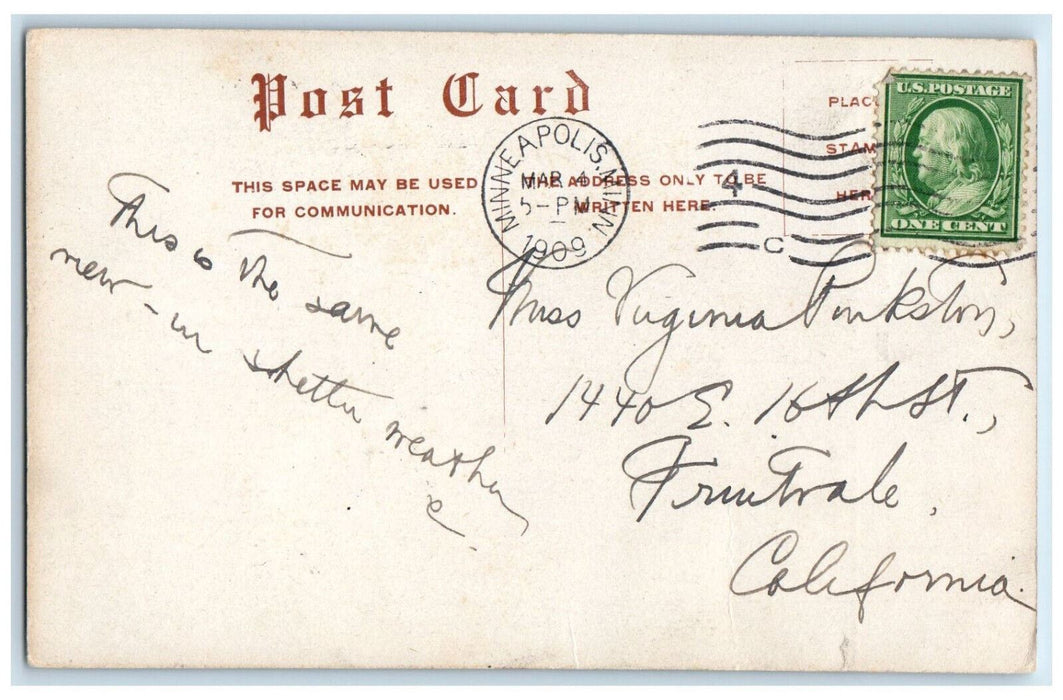 Post Card
THIS SPACE MAY BE USED
FOR COMMUNICATION.
THE ADDRESS ONLY TO BE
WRITTEN HERE.
PLACE
STAMP
HERE
U.S. POSTAGE
ONE CENT
MINNEAPOLIS, MINN
MAR 4
5-PM
1909
4
C
This is the same
view - in
weather
Miss Virginia
1440 E. 16th St.,
Fruitvale,
California.